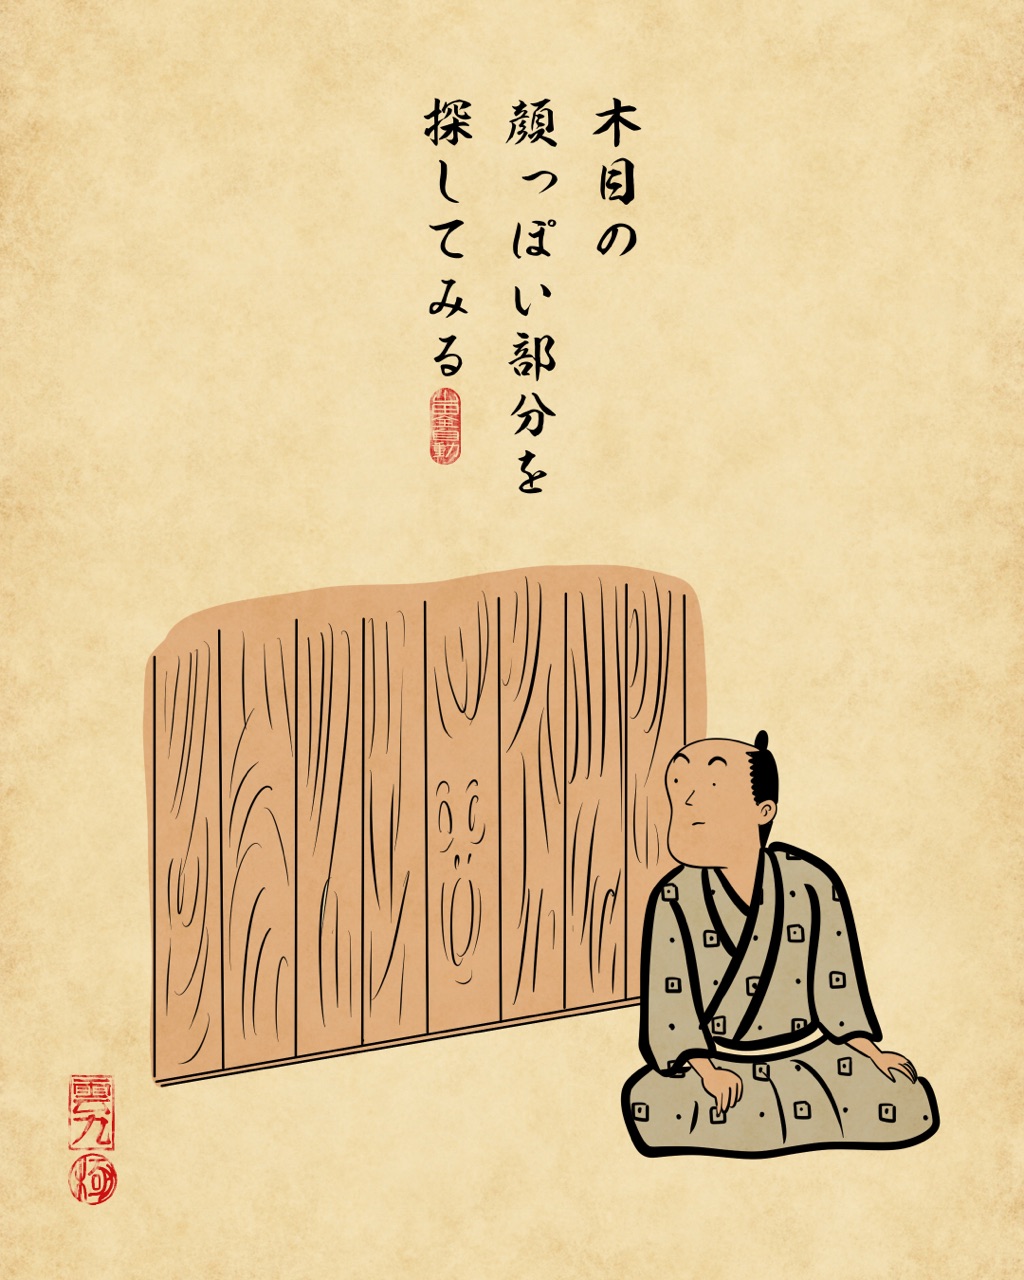 木目の
顔っぽい部分を
探してみる